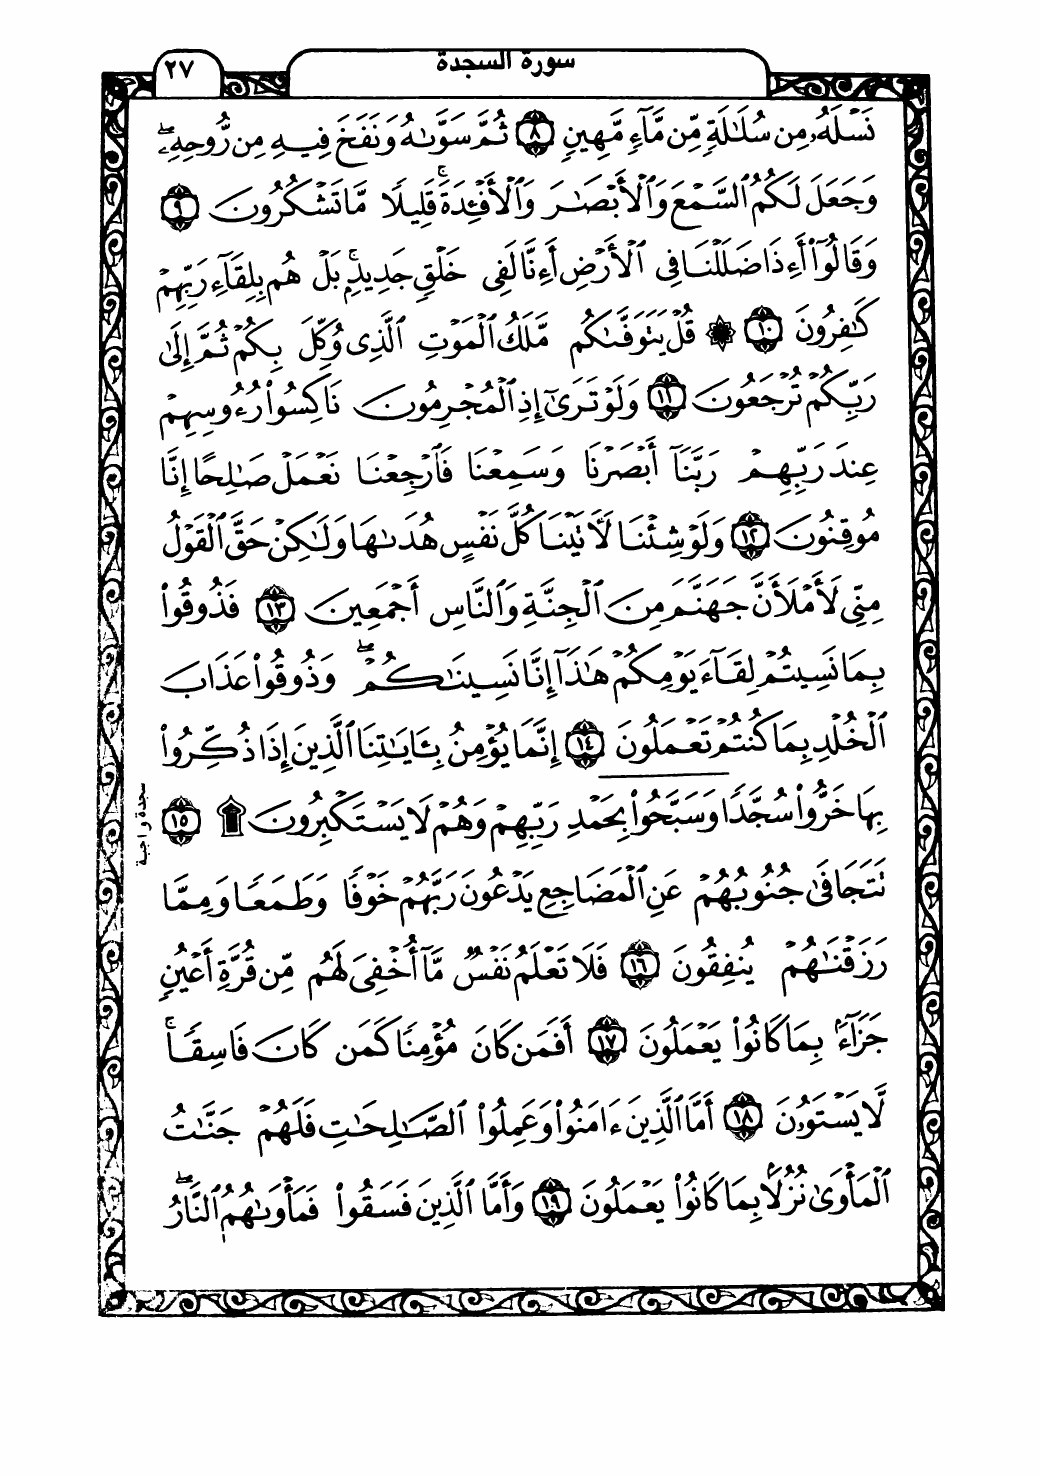 سورة السجدة
٢٧
نَسْلَهُۥ مِن سُلَٰلَةٍ مِّن مَّآءٍ مَّهِينٍ ٨ ثُمَّ سَوَّىٰهُ وَنَفَخَ فِيهِ مِن رُّوحِهِۦۖ
وَجَعَلَ لَكُمُ ٱلسَّمْعَ وَٱلْأَبْصَٰرَ وَٱلْأَفْـِٔدَةَۚ قَلِيلًا مَّا تَشْكُرُونَ ٩
وَقَالُوٓا۟ أَءِذَا ضَلَلْنَا فِى ٱلْأَرْضِ أَءِنَّا لَفِى خَلْقٍ جَدِيدٍۭۚ بَلْ هُم بِلِقَآءِ رَبِّهِمْ
كَٰفِرُونَ ١٠ ۞ قُلْ يَتَوَفَّىٰكُم مَّلَكُ ٱلْمَوْتِ ٱلَّذِى وُكِّلَ بِكُمْ ثُمَّ إِلَىٰ
رَبِّكُمْ تُرْجَعُونَ ١١ وَلَوْ تَرَىٰٓ إِذِ ٱلْمُجْرِمُونَ نَاكِسُوا۟ رُءُوسِهِمْ
عِندَ رَبِّهِمْ رَبَّنَآ أَبْصَرْنَا وَسَمِعْنَا فَٱرْجِعْنَا نَعْمَلْ صَٰلِحًا إِنَّا
مُوقِنُونَ ١٢ وَلَوْ شِئْنَا لَءَاتَيْنَا كُلَّ نَفْسٍ هُدَىٰهَا وَلَٰكِنْ حَقَّ ٱلْقَوْلُ
مِنِّى لَأَمْلَأَنَّ جَهَنَّمَ مِنَ ٱلْجِنَّةِ وَٱلنَّاسِ أَجْمَعِينَ ١٣ فَذُوقُوا۟
بِمَا نَسِيتُمْ لِقَآءَ يَوْمِكُمْ هَٰذَآ إِنَّا نَسِينَٰكُمْۖ وَذُوقُوا۟ عَذَابَ
ٱلْخُلْدِ بِمَا كُنتُمْ تَعْمَلُونَ ١٤ إِنَّمَا يُؤْمِنُ بِـَٔايَٰتِنَا ٱلَّذِينَ إِذَا ذُكِّرُوا۟
بِهَا خَرُّوا۟ سُجَّدًا وَسَبَّحُوا۟ بِحَمْدِ رَبِّهِمْ وَهُمْ لَا يَسْتَكْبِرُونَ ۩ ١٥
سجدة واجبة
تَتَجَافَىٰ جُنُوبُهُمْ عَنِ ٱلْمَضَاجِعِ يَدْعُونَ رَبَّهُمْ خَوْفًا وَطَمَعًا وَمِمَّا
رَزَقْنَٰهُمْ يُنفِقُونَ ١٦ فَلَا تَعْلَمُ نَفْسٌ مَّآ أُخْفِىَ لَهُم مِّن قُرَّةِ أَعْيُنٍ
جَزَآءًۢ بِمَا كَانُوا۟ يَعْمَلُونَ ١٧ أَفَمَن كَانَ مُؤْمِنًا كَمَن كَانَ فَاسِقًاۚ
لَّا يَسْتَوُۥنَ ١٨ أَمَّا ٱلَّذِينَ ءَامَنُوا۟ وَعَمِلُوا۟ ٱلصَّٰلِحَٰتِ فَلَهُمْ جَنَّٰتُ
ٱلْمَأْوَىٰ نُزُلًۢا بِمَا كَانُوا۟ يَعْمَلُونَ ١٩ وَأَمَّا ٱلَّذِينَ فَسَقُوا۟ فَمَأْوَىٰهُمُ ٱلنَّارُۖ